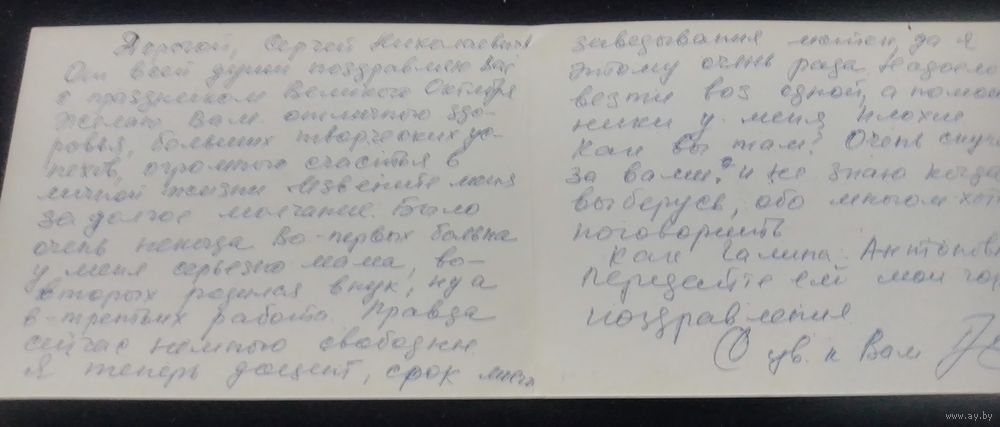 Дорогой, Сергей Николаевич!
От всей души поздравляю Вас
с праздником Великого Октября
Желаю Вам отличного здо-
ровья, больших творческих ус-
пехов, огромного счастья в
личной жизни Извените меня
за долгое молчание. Было
очень некогда Во-первых больна
у меня серьезно мама, во-
вторых родился внук, ну а
в-третьих работа. Правда
сейчас немного свободнее
Я теперь доцент, срок моего
заведывания истек, да я
этому очень рада. Надоело
везти воз одной, а помощ
ники у меня плохие
Как вы там? Очень скуч
за вами и не знаю когда
выберусь, обо многом хот
поговорить
Как Галина Антоновн
Передайте ей мои гор
поздравления
С ув. к Вам
www.ay.by